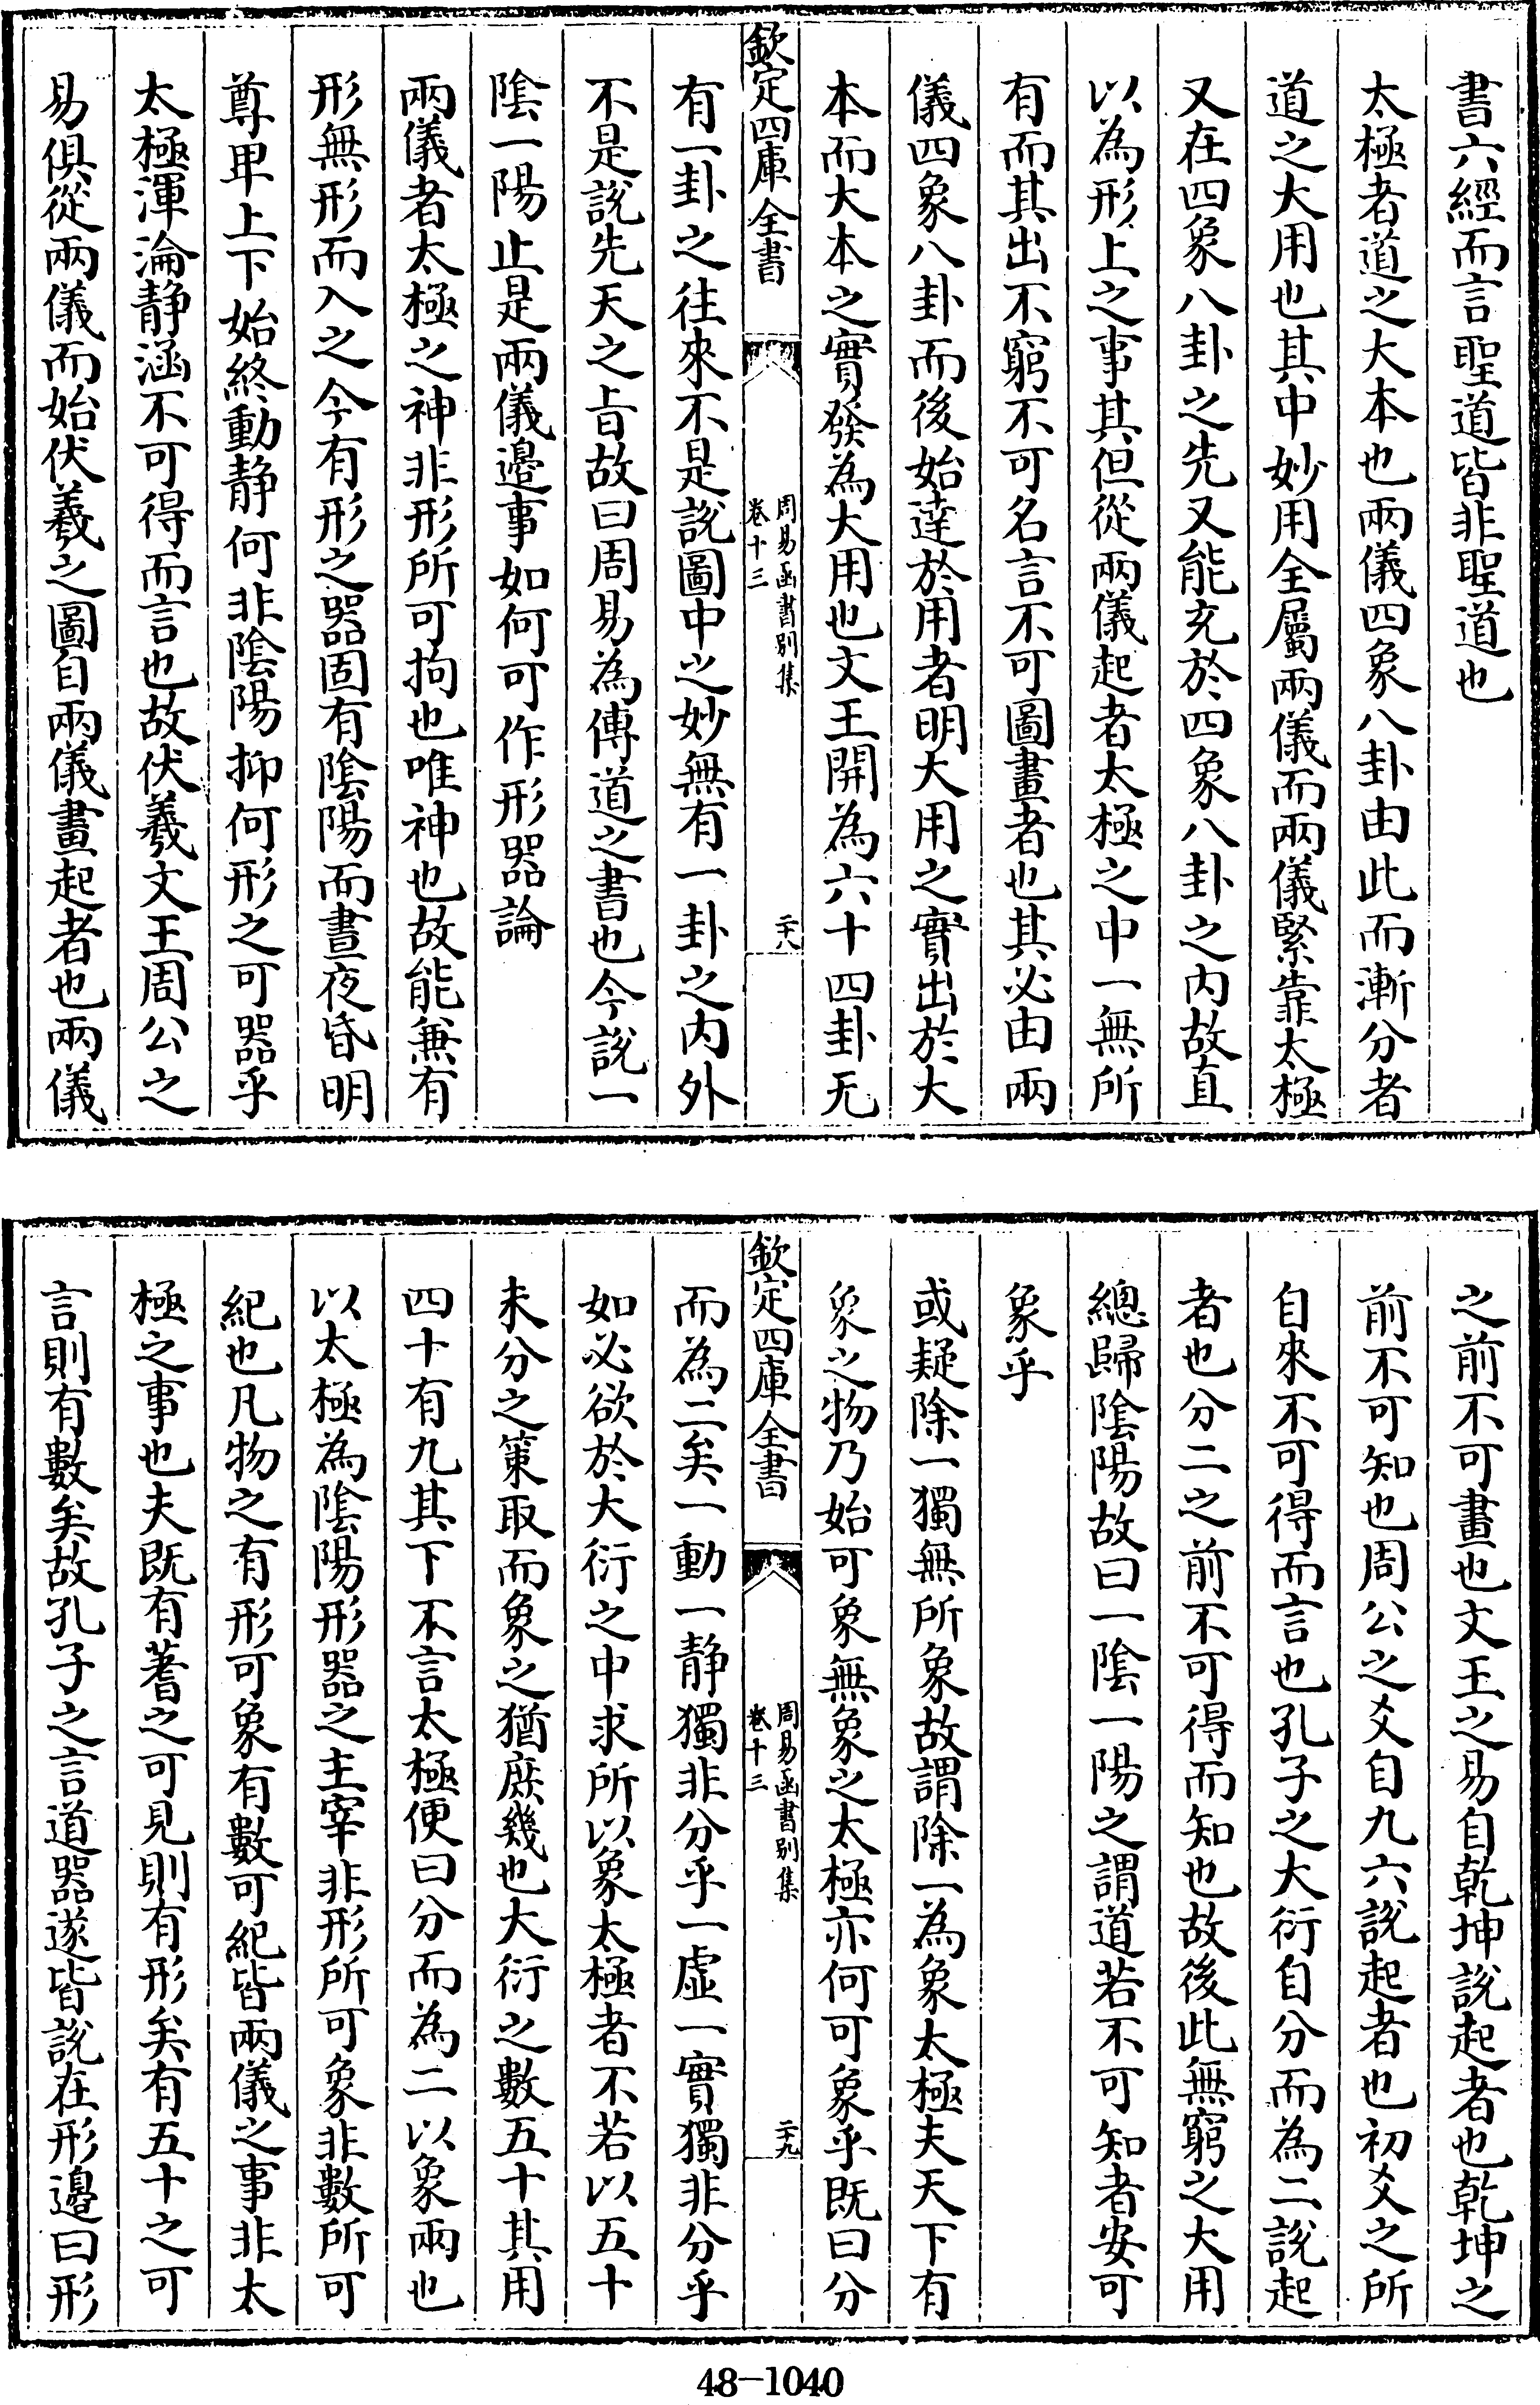 書六經而言聖道皆非聖道也
太極者道之大本也兩儀四象八卦由此而漸分者
道之大用也其中妙用全屬兩儀而兩儀緊靠太極
又在四象八卦之先又能充於四象八卦之内故直
以為形上之事其但從兩儀起者太極之中一無所
有而其出不窮不可名言不可圖畫者也其必由兩
儀四象八卦而後始達於用者明大用之實出於大
本而大本之實發為大用也文王開為六十四卦无
欽定四庫全書
周易函書別集
卷十三
二十八
有一卦之往來不是說圖中之妙無有一卦之内外
不是說先天之㫖故曰周易為傳道之書也今說一
陰一陽止是兩儀邊事如何可作形器論
兩儀者太極之神非形所可拘也唯神也故能兼有
形無形而入之今有形之器固有陰陽而晝夜昏明
尊卑上下始終動静何非陰陽抑何形之可器乎
太極渾淪静涵不可得而言也故伏羲文王周公之
易俱從兩儀而始伏羲之圖自兩儀畫起者也兩儀
之前不可畫也文王之易自乾坤說起者也乾坤之
前不可知也周公之爻自九六說起者也初爻之所
自來不可得而言也孔子之大衍自分而為二說起
者也分二之前不可得而知也故後此無窮之大用
總歸陰陽故曰一陰一陽之謂道若不可知者安可
象乎
或疑除一獨無所象故謂除一為象太極夫天下有
象之物乃始可象無象之太極亦何可象乎既曰分
欽定四庫全書
周易函書別集
卷十三
二十九
而為二矣一動一静獨非分乎一虚一實獨非分乎
如必欲於大衍之中求所以象太極者不若以五十
未分之策取而象之猶庶幾也大衍之數五十其用
四十有九其下不言太極便曰分而為二以象兩也
以太極為陰陽形器之主宰非形所可象非數所可
紀也凡物之有形可象有數可紀皆兩儀之事非太
極之事也夫既有蓍之可見則有形矣有五十之可
言則有數矣故孔子之言道器遂皆說在形邊曰形
48-1040